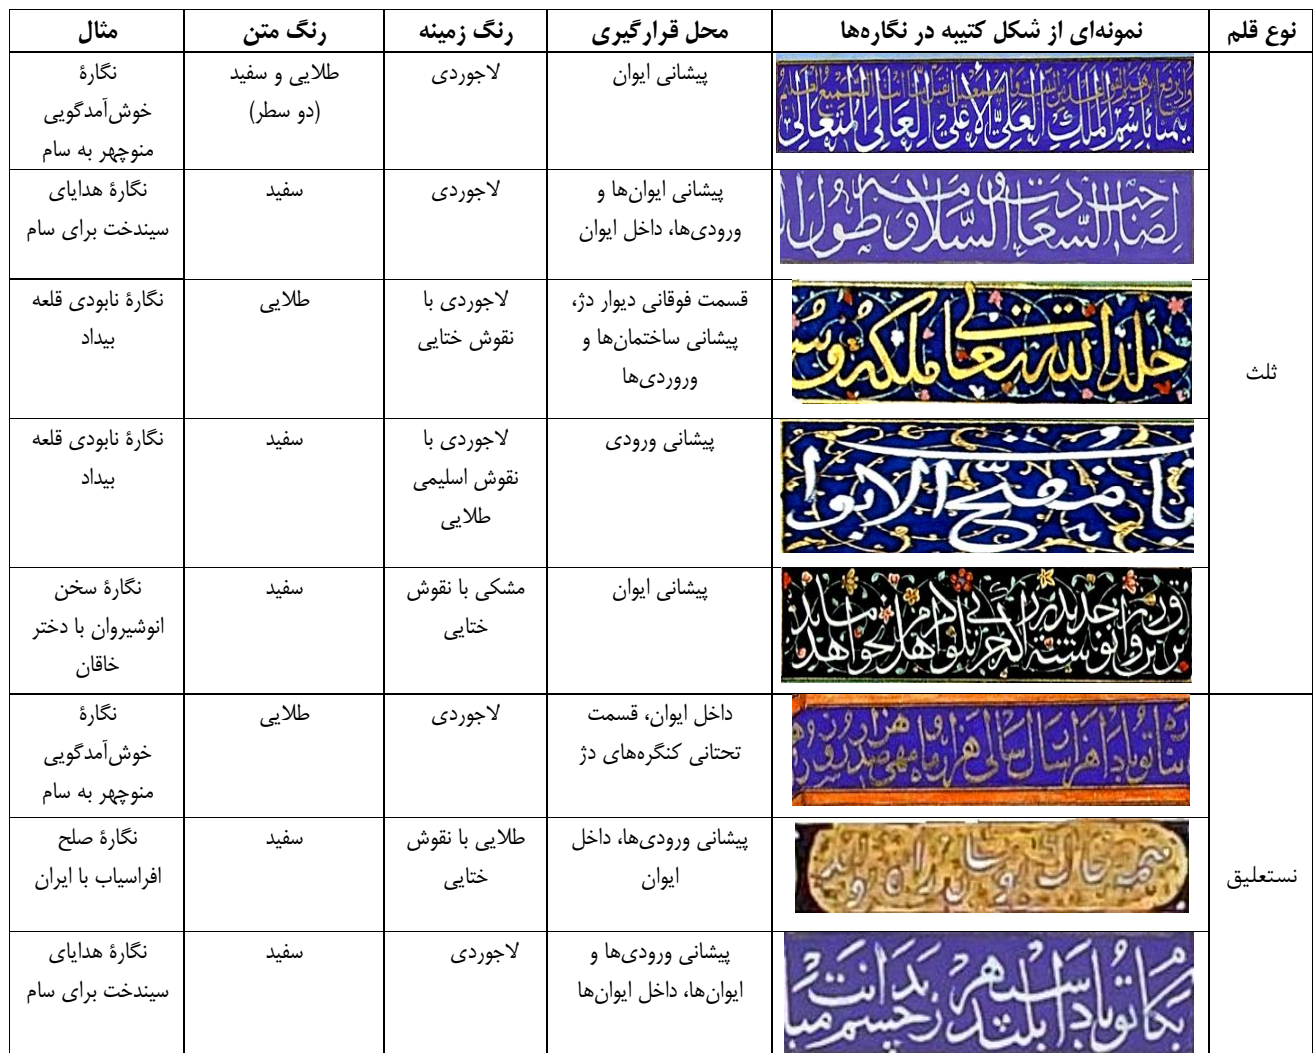 نوع قلم	نمونه‌ای از شکل کتیبه در نگاره‌ها	محل قرارگیری	رنگ زمینه	رنگ متن	مثال
ثلث
بسم الملک العلی الاعلی العالی المتعالی
پیشانی ایوان
لاجوردی
طلایی و سفید
(دو سطر)
نگارۀ
خوش‌آمدگویی
منوچهر به سام
لصاحب السعادت و السلامه طول ا
پیشانی ایوان‌ها و
ورودی‌ها، داخل ایوان
لاجوردی
سفید
نگارۀ هدایای
سیندخت برای سام
خلد الله تعالی ملکه و س
قسمت فوقانی دیوار دژ،
پیشانی ساختمان‌ها و
وروردی‌ها
لاجوردی با
نقوش ختایی
طلایی
نگارۀ نابودی قلعه
بیداد
یا مفتح الابوا
پیشانی ورودی
لاجوردی با
نقوش اسلیمی
طلایی
سفید
نگارۀ نابودی قلعه
بیداد
پیشانی ایوان
مشکی با نقوش
ختایی
سفید
نگارۀ سخن
انوشیروان با دختر
خاقان
نستعلیق
داخل ایوان، قسمت
تحتانی کنگره‌های دژ
لاجوردی
طلایی
نگارۀ
خوش‌آمدگویی
منوچهر به سام
پیشانی ورودی‌ها، داخل
ایوان
طلایی با نقوش
ختایی
سفید
نگارۀ صلح
افراسیاب با ایران
پیشانی ورودی‌ها و
ایوان‌ها، داخل ایوان‌ها
لاجوردی
سفید
نگارۀ هدایای
سیندخت برای سام